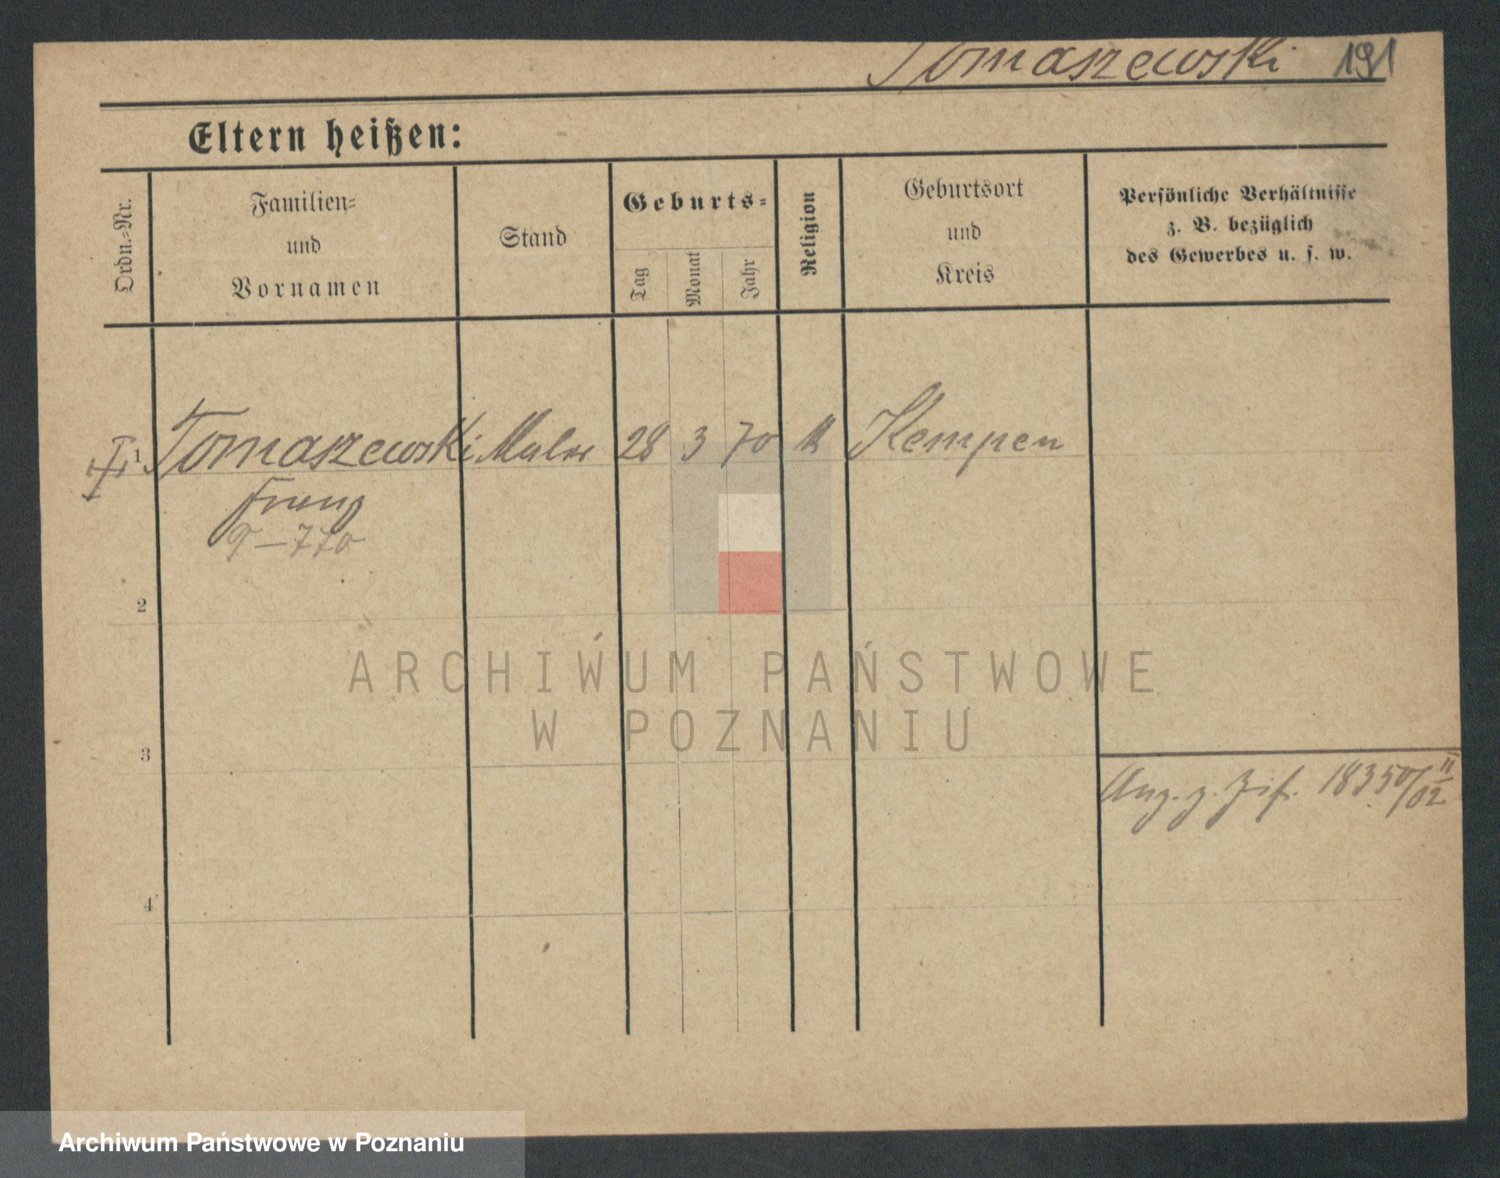 Tomaszewski 191
Eltern heißen:
Ordn.-Nr.
Familien-
und
Vornamen
Stand
Geburts-
Tag
Monat
Jahr
Religion
Geburtsort
und
Kreis
Persönliche Verhältnisse
z. B. bezüglich
des Gewerbes u. s. w.
1 Tomaszewski Maler 28 3 70 Kempen
Franz
T-770
2
3
18350/02
4
ARCHIWUM PAŃSTWOWE
W POZNANIU
Archiwum Państwowe w Poznaniu